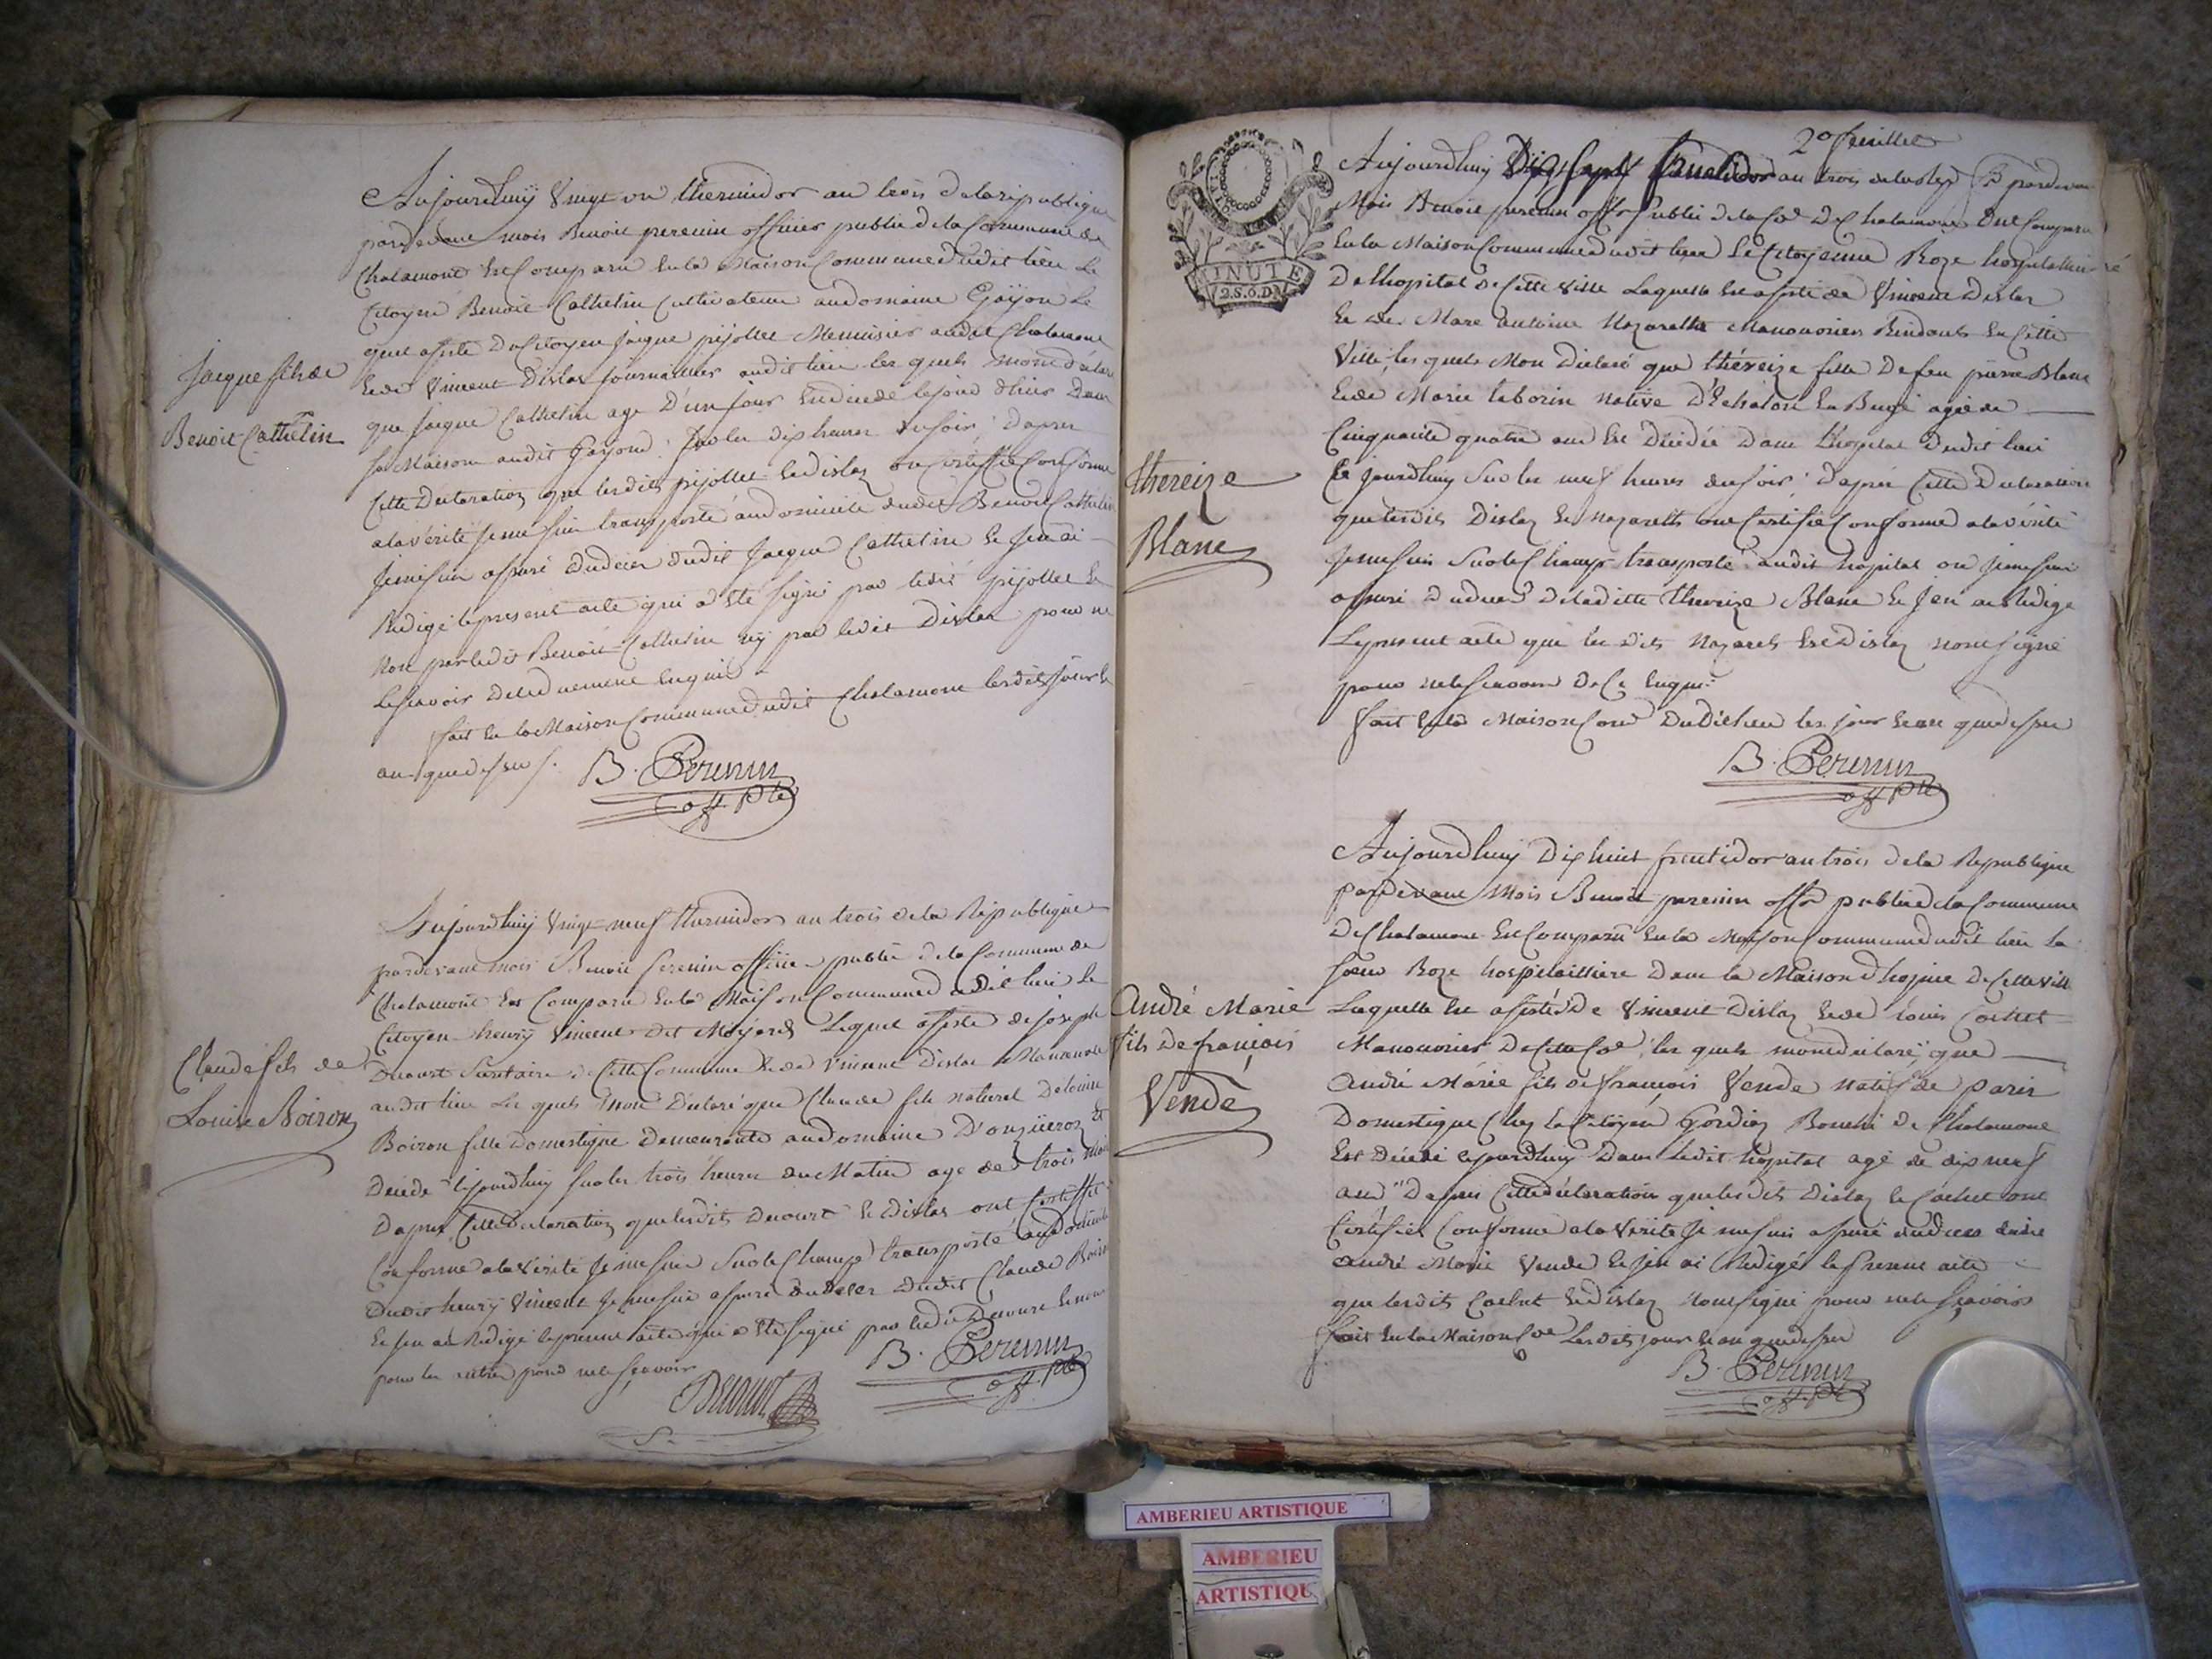 Aujourdhuÿ Vingt un thermidor an trois de la republique
pardevant mois Benoit perenin officier public de la Commune de
Chalamont Est Comparu En la Maison Commune dudit lieu Le
Citoyen Benoit Cathelin Cultivateur au domaine Gaÿon Le
quel assisté du Citoyen Jacque pijollet Menuisier audit Chalamont
Et de Vincent Dislaz Journallier audit lieu les quels mont déclaré
que Jacque Cathelin age D'un jour Est décédé le jour d'hier Dans
sa Maison audit Gaÿond Sur les dix heures du soir Dapres
Cette Declaration que lesdits pijollet Et dislaz ont Certiffié Conforme
a la vérité je me suis transporté au domicile dudit Benoit Cathelin
Je me suis assuré du déces dudit Jacque Cathelin Et J'en ai
Rédigé le present acte qui a Eté signé par ledit pijollet Et
Non par ledit Benoit Cathelin nÿ par ledit Dislaz pour ne
le scavoir De ce duement Enquis
fait En la Maison Commune dudit Chalamont lesdits jour Et
an que dessus
B. Perenin
off. Plic
Jacque fils de
Benoit Cathelin
Aujourdhuÿ Vingt neuf thermidor an trois de la République
pardevant mois Benoit perenin officier public de la Commune de
Chalamont Est Comparu En la Maison Commune dudit lieu Le
Citoyen henrÿ Vincent dit Lequel assisté de joseph
Ducourt Secretaire de Cette Commune Et de Vincent Dislaz Manouvrier
audit lieu Les quels mont Déclaré que Claude fils naturel De louise
Boiron fille Domestique Demeurante au domaine Et
Décédé le jourdhuÿ sur les trois heures du Matin age de trois Mois
Dapres Cette Declaration que lesdits Ducourt Et Dislaz ont Certiffié
Conforme a la Vérité Je me suis Sur le Champ transporté au domicile
dudit henrÿ Vincent Je me suis assuré du déces dudit Claude Boiron
Et J'en ai Rédigé le present acte qui a Eté signé par ledit Ducourt Et non
pour les autres pour ne le scavoir
B. Perenin
off. Plic
Ducourt
Claude fils de
Louise Boiron
2e feuillet
MINUTE
2.S.6.D
Aujourdhuÿ Dix Sept fructidor an trois de la Rep pardevant
Mois Benoit perenin offr public de la Coe De Chalamont Est Comparu
En la Maison Commune dudit lieu La Citoyenne Roze hospitaliere
De lhopital de Cette Ville Laquelle Est assisté de Vincent Dislaz
Et de Marc antoine Nazareth Manouvrier Résidants En Cette
Ville, les quels Mon Déclaré que théreize fille De feu pierre Blanc
Et de Marie taborin native D'Echalon En Bugé agée de
Cinquante quatre ans Est Décédée Dans l'hopital Dudit lieu
Ce jourdhuÿ Sur les neuf heures du soir ; dapres Cette Declaration
que lesdits Dislaz Et Nazareth ont Certifié Conforme a la vérité
Je me suis Sur le Champ transporté audit hopital ou je me suis
assuré du déces De la ditte thereize Blanc Et J'en ai Rédigé
Le present acte que les dits Nazareth Et Dislaz nont signé
pour ne le scavoir De Ce Enquis
fait En la Maison Come Dudit lieu les jour Et an que dessus
B. Perenin
off. Plic
thereize
Blanc
Aujourdhuÿ Dix huit fructidor an trois de la République
pardevant Mois Benoit perenin offr public de la Commune
De Chalamont Est Comparu En la Maison Commune dudit lieu La
soeur Roze hospitailliere Dans la Maison Dhospice De Cette Ville
Laquelle Est assistée De Vincent Dislaz Et de louis Cochet
Manouvrier De Cette Coe, les quels mont déclaré que
André Marie fils de francois Vende natif de paris
Domestique Chez Le Citoyen Gordiaz Bouché De Chalamont
Est Décédé ce jourdhuÿ Dans Ledit hopital agé de dix neuf
ans Dapres Cette déclaration que lesdits Dislaz Et Cochet ont
Certifiés Conforme a la Vérité Je me suis assuré du déces dudit
André Marie Vende Et J'en ai Rédigé le present acte
que lesdits Cochet Et Dislaz n'ont signé pour ne le scavoir
fait En la Maison Coe Lesdits jour Et an que dessus
B. Perenin
off. Plic
André Marie
fils De francois
Vende
AMBERIEU ARTISTIQUE
AMBERIEU
ARTISTIQU